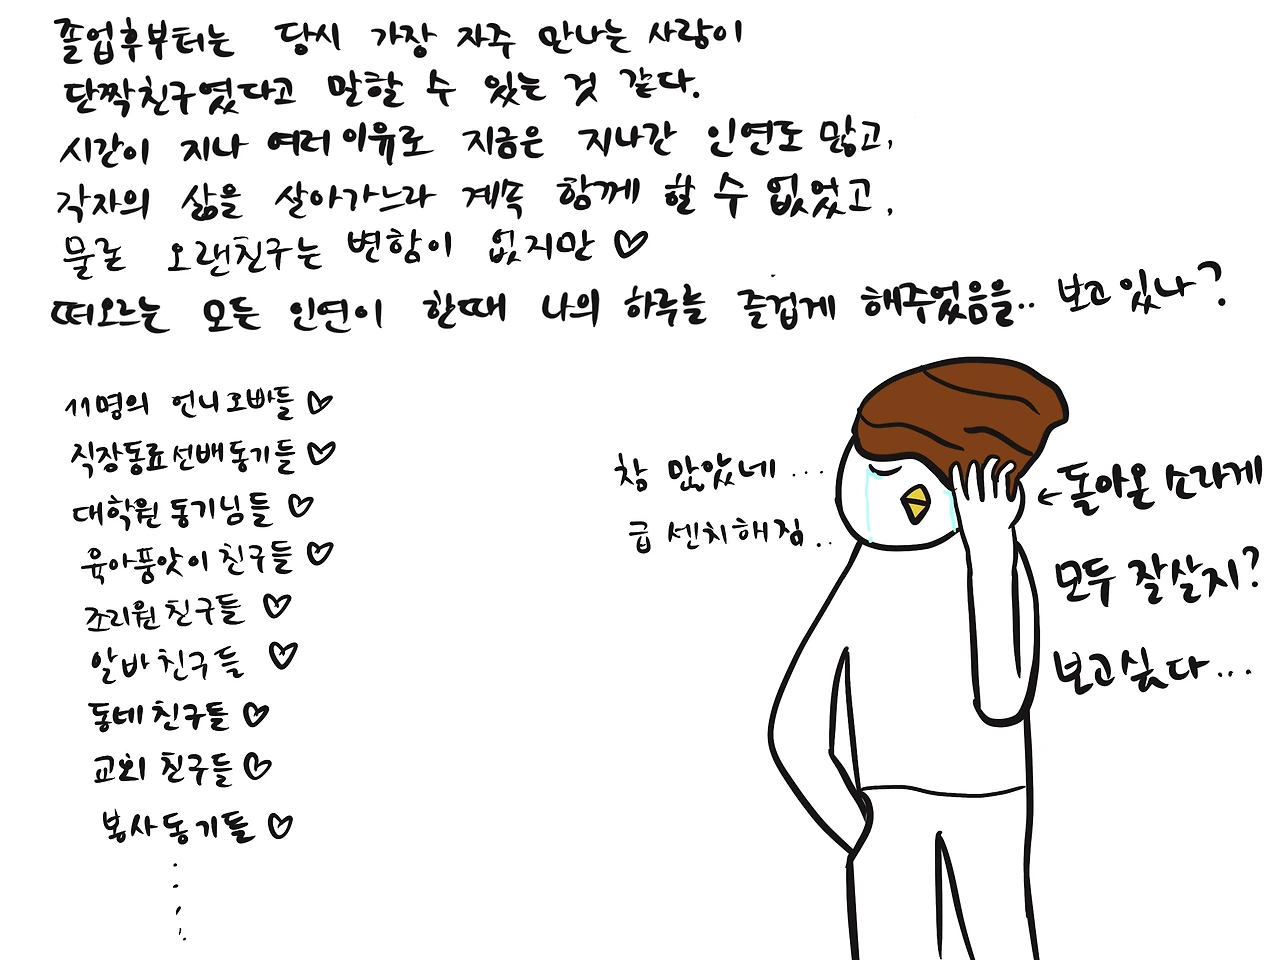 졸업후부터는 당시 가장 자주 만나는 사람이
단짝친구였다고 말할 수 있는 것 같다.
시간이 지나 여러이유로 지금은 지나간 인연도 많고,
각자의 삶을 살아가느라 계속 함께 할 수 없었고,
물론 오랜친구는 변함이 없지만 ♡
떠오르는 모든 인연이 한때 나의 하루를 즐겁게 해주었음을.. 보고있나?
11명의 언니오빠들 ♡
직장동료선배동기들 ♡
대학원 동기님들 ♡
육아품앗이 친구들 ♡
조리원친구들 ♡
알바친구들 ♡
동네친구들 ♡
교회 친구들 ♡
봉사동기들 ♡
참 많았네...
급 센치해짐..
← 돌아온 소라게
모두 잘살지?
보고싶다...